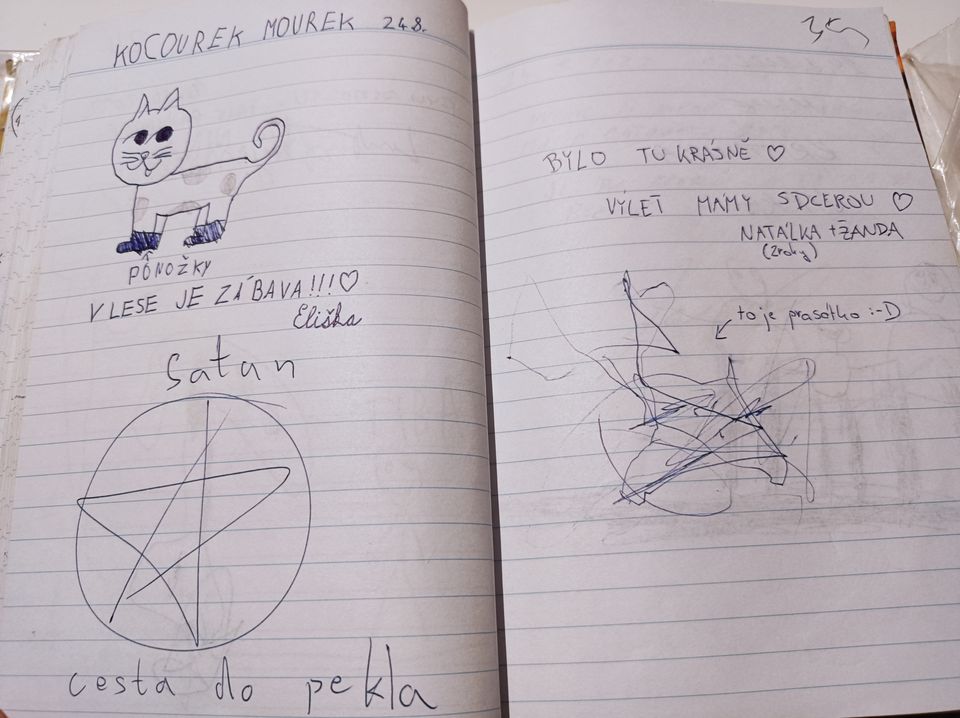 KOCOUREK MOUREK 24.8.
PONOŽKY
V LESE JE ZÁBAVA!!!♡
Eliška
Satan
cesta do pekla
BYLO TU KRÁSNĚ ♡
VÝLET MAMY S DCEROU ♡
NATÁLKA + ŽANDA
(2roky)
to je prasátko :-D